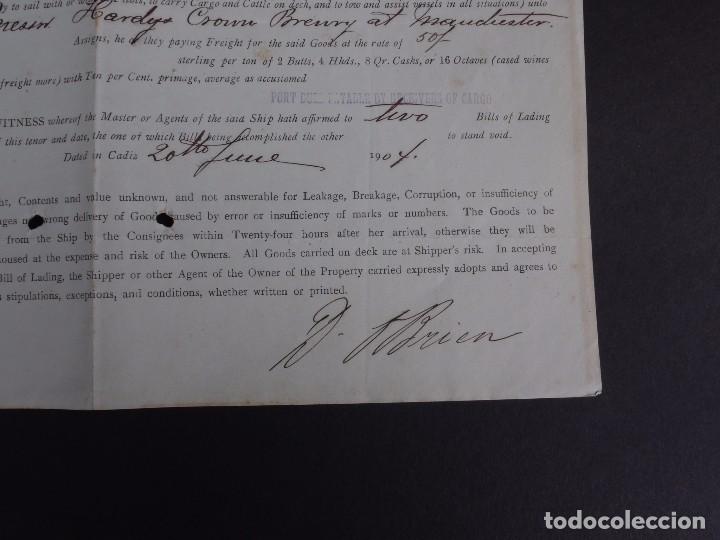 to sail with or to carry Cargo and Cattle on deck, and to tow and assist vessels in all situations) unto
Hardys Crown Brewry at Manchester.
Assigns, he or they paying Freight for the said Goods at the rate of 50/
sterling per ton of 2 Butts, 4 Hhds., 8 Qr. Casks, or 16 Octaves (cased wines
freight more) with Ten per Cent. primage, average as accustomed
PORT DUES PAYABLE BY RECEIVERS OF CARGO
WITNESS whereof the Master or Agents of the said Ship hath affirmed to two Bills of Lading
this tenor and date, the one of which Bills being accomplished the other to stand void.
Dated in Cadiz 20th June 1904.
Contents and value unknown, and not answerable for Leakage, Breakage, Corruption, or insufficiency of
wrong delivery of Goods caused by error or insufficiency of marks or numbers. The Goods to be
from the Ship by the Consignees within Twenty-four hours after her arrival, otherwise they will be
at the expense and risk of the Owners. All Goods carried on deck are at Shipper's risk. In accepting
Bill of Lading, the Shipper or other Agent of the Owner of the Property carried expressly adopts and agrees to
stipulations, exceptions, and conditions, whether written or printed.
D. O'Brien
todocoleccion
todocoleccion.net